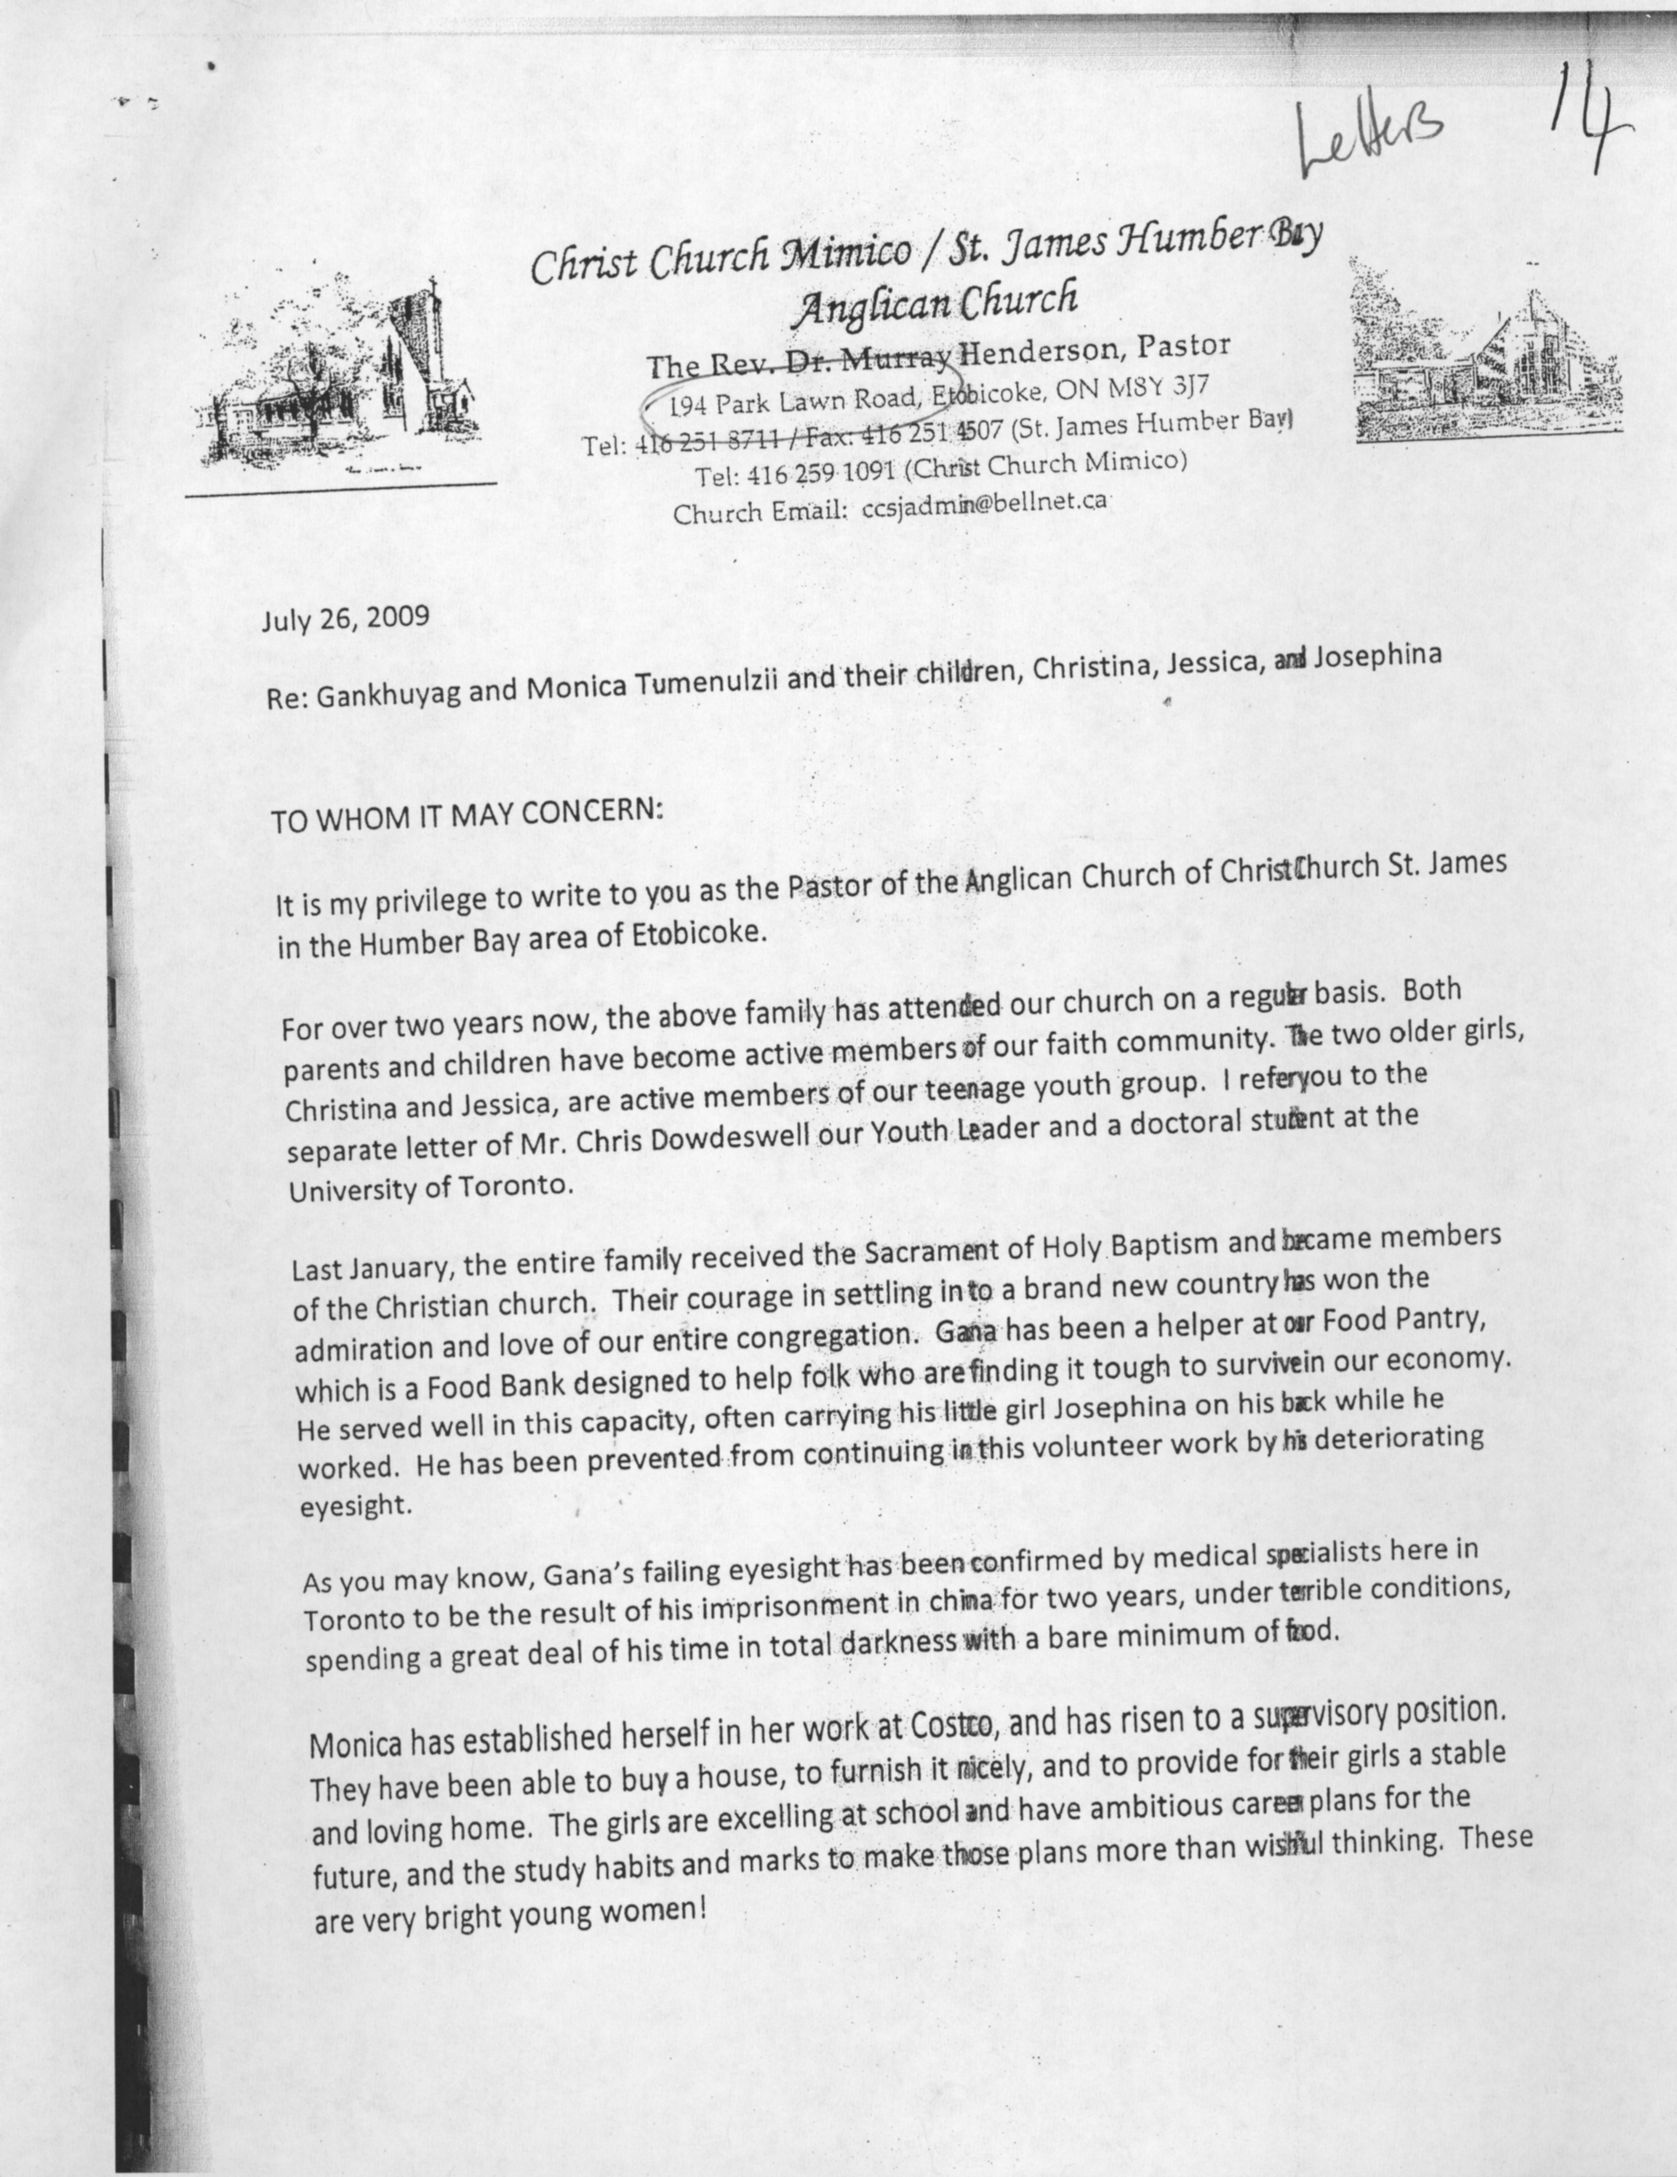 Letters 14
Christ Church Mimico / St. James Humber Bay
Anglican Church
The Rev. Dr. Murray Henderson, Pastor
194 Park Lawn Road, Etobicoke, ON M8Y 3J7
Tel: 416 251 8711 / Fax: 416 251 4507 (St. James Humber Bay)
Tel: 416 259 1091 (Christ Church Mimico)
Church Email: ccsjadmin@bellnet.ca
July 26, 2009
Re: Gankhuyag and Monica Tumenulzii and their children, Christina, Jessica, and Josephina
TO WHOM IT MAY CONCERN:
It is my privilege to write to you as the Pastor of the Anglican Church of Christ Church St. James
in the Humber Bay area of Etobicoke.
For over two years now, the above family has attended our church on a regular basis. Both
parents and children have become active members of our faith community. The two older girls,
Christina and Jessica, are active members of our teenage youth group. I refer you to the
separate letter of Mr. Chris Dowdeswell our Youth Leader and a doctoral student at the
University of Toronto.
Last January, the entire family received the Sacrament of Holy Baptism and became members
of the Christian church. Their courage in settling into a brand new country has won the
admiration and love of our entire congregation. Gana has been a helper at our Food Pantry,
which is a Food Bank designed to help folk who are finding it tough to survive in our economy.
He served well in this capacity, often carrying his little girl Josephina on his back while he
worked. He has been prevented from continuing in this volunteer work by his deteriorating
eyesight.
As you may know, Gana's failing eyesight has been confirmed by medical specialists here in
Toronto to be the result of his imprisonment in china for two years, under terrible conditions,
spending a great deal of his time in total darkness with a bare minimum of food.
Monica has established herself in her work at Costco, and has risen to a supervisory position.
They have been able to buy a house, to furnish it nicely, and to provide for their girls a stable
and loving home. The girls are excelling at school and have ambitious career plans for the
future, and the study habits and marks to make those plans more than wishful thinking. These
are very bright young women!